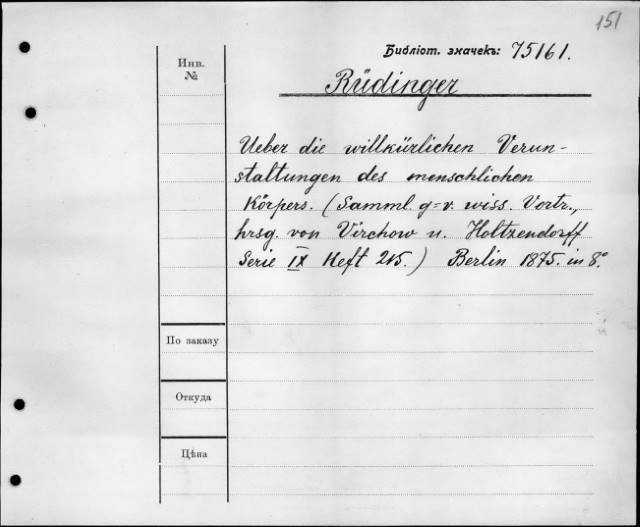 151
Библіот. значекъ: 75161.
Инв.
№
Rüdinger
Ueber die willkürlichen Verun-
staltungen des menschlichen
Körpers. (Samml. g=v. wiss. Vortr.,
hrsg. von Virchow u. Holtzendorff
Serie IX Heft 215.) Berlin 1875. in 8°.
По заказу
Откуда
Цѣна